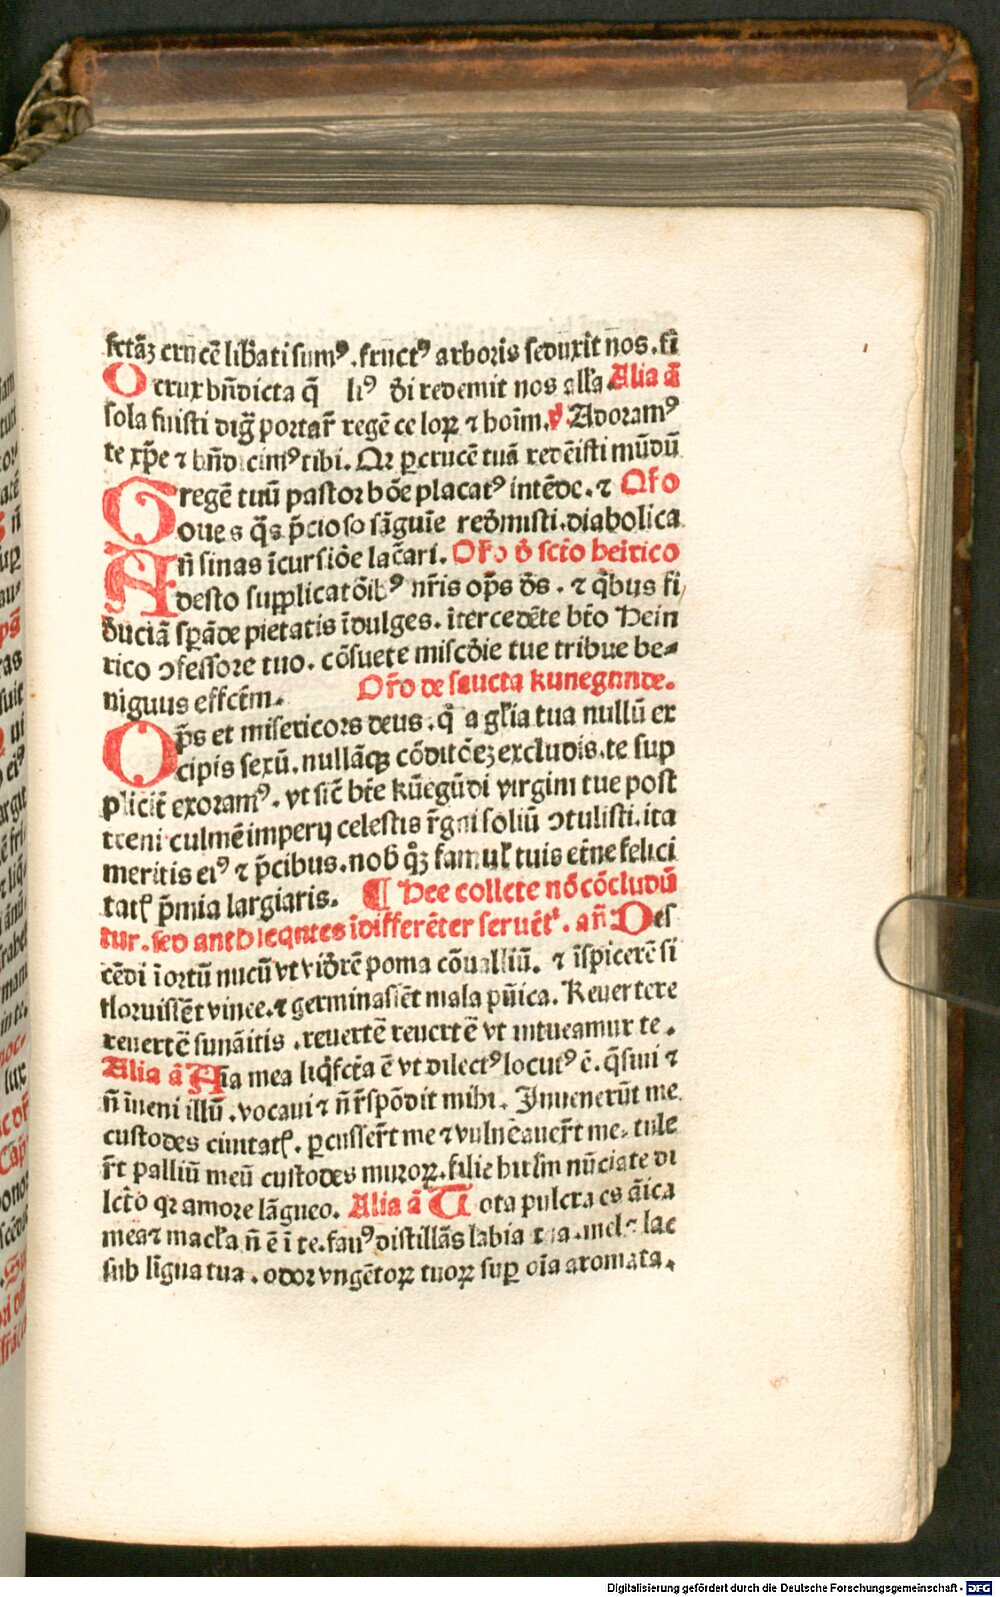 fctāꝫ crucē libati sumꝰ. fructꝰ arboris seduxit nos. fi
O crux bn̄dicta q̄ liꝰ di redemit nos alla. Alia añ
sola fuisti dig̃ portar̃ regē celoꝝ ⁊ hoīm. ℣ Adoramꝰ
te xp̄e ⁊ bn̄dicimꝰ tibi. Qꝛ ꝑ crucē tuā redēisti mūdū
Gregē tuū pastor bōe placatꝰ intēde. ⁊ Oŕo
oues q̄s p̄cioso sāguīe redmisti. diabolica
ñ sinas īcursiōe lac̄ari. Oŕo d̄ sct̄o heīrico
Adesto supplicatōibꝰ nr̄is op̄s d̄s. ⁊ qͥbus fi
duciā sꝑāde pietatis īdulges. ītercedēte bt̄o Hein
rico ꝯfessore tuo. cōsuete miscdīe tue tribue be⸗
niguus effctm̄. Or̄o de sancta kunegunde.
Op̄s et misericors deus. q̄ a glīa tua nullū ex
cipis sexū. nullāqꝫ cōditōeꝫ excludis. te sup
plicit̄ exoramꝰ. vt sic̄ bt̄e kūegūdi virgini tue post
treni culmē imperij celestis r̄gni soliū ꝯtulisti. ita
meritis eiꝰ ⁊ p̄cibus. nob̄ qͣꝫ famul̄ tuis et̄ne felici
tatꝭ p̄mia largiaris. ¶ Hee collete nō cōcludū
tur. sed antḣ seqn̄tes īdifferēter seruēt̄. añ Des
cēdi ī ortū nucū vt vidr̄ē poma cōualliū. ⁊ īspicerē si
floruissēt vinee. ⁊ germinassēt mala pu̅ica. Reuertere
reuertē sunāitis. reuertē reuertē vt intueamur te.
Alia añ Aīa mea liq̄fctā ē vt dilectꝰ locutꝰ ē. q̄siui ⁊
ñ īueni illū. vocaui ⁊ ñ r̄spōdit mihi. Inuenerūt me
custodes ciuitatꝭ. ꝑcusser̄t me ⁊ vulneauer̄t me. tule
r̄t palliū meū custodes muroꝝ. filie hir̄lm nūciate di
lct̄o qꝛ amore lāgueo. Alia añ Tota pulcra es āica
mea ⁊ macl̄a ñ ē ī te. fauꝰ distillās labia tua. mel ⁊ lac
sub līgua tua. odor vngētoꝝ tuoꝝ suꝑ oīa aromata.
Digitalisierung gefördert durch die Deutsche Forschungsgemeinschaft - DFG